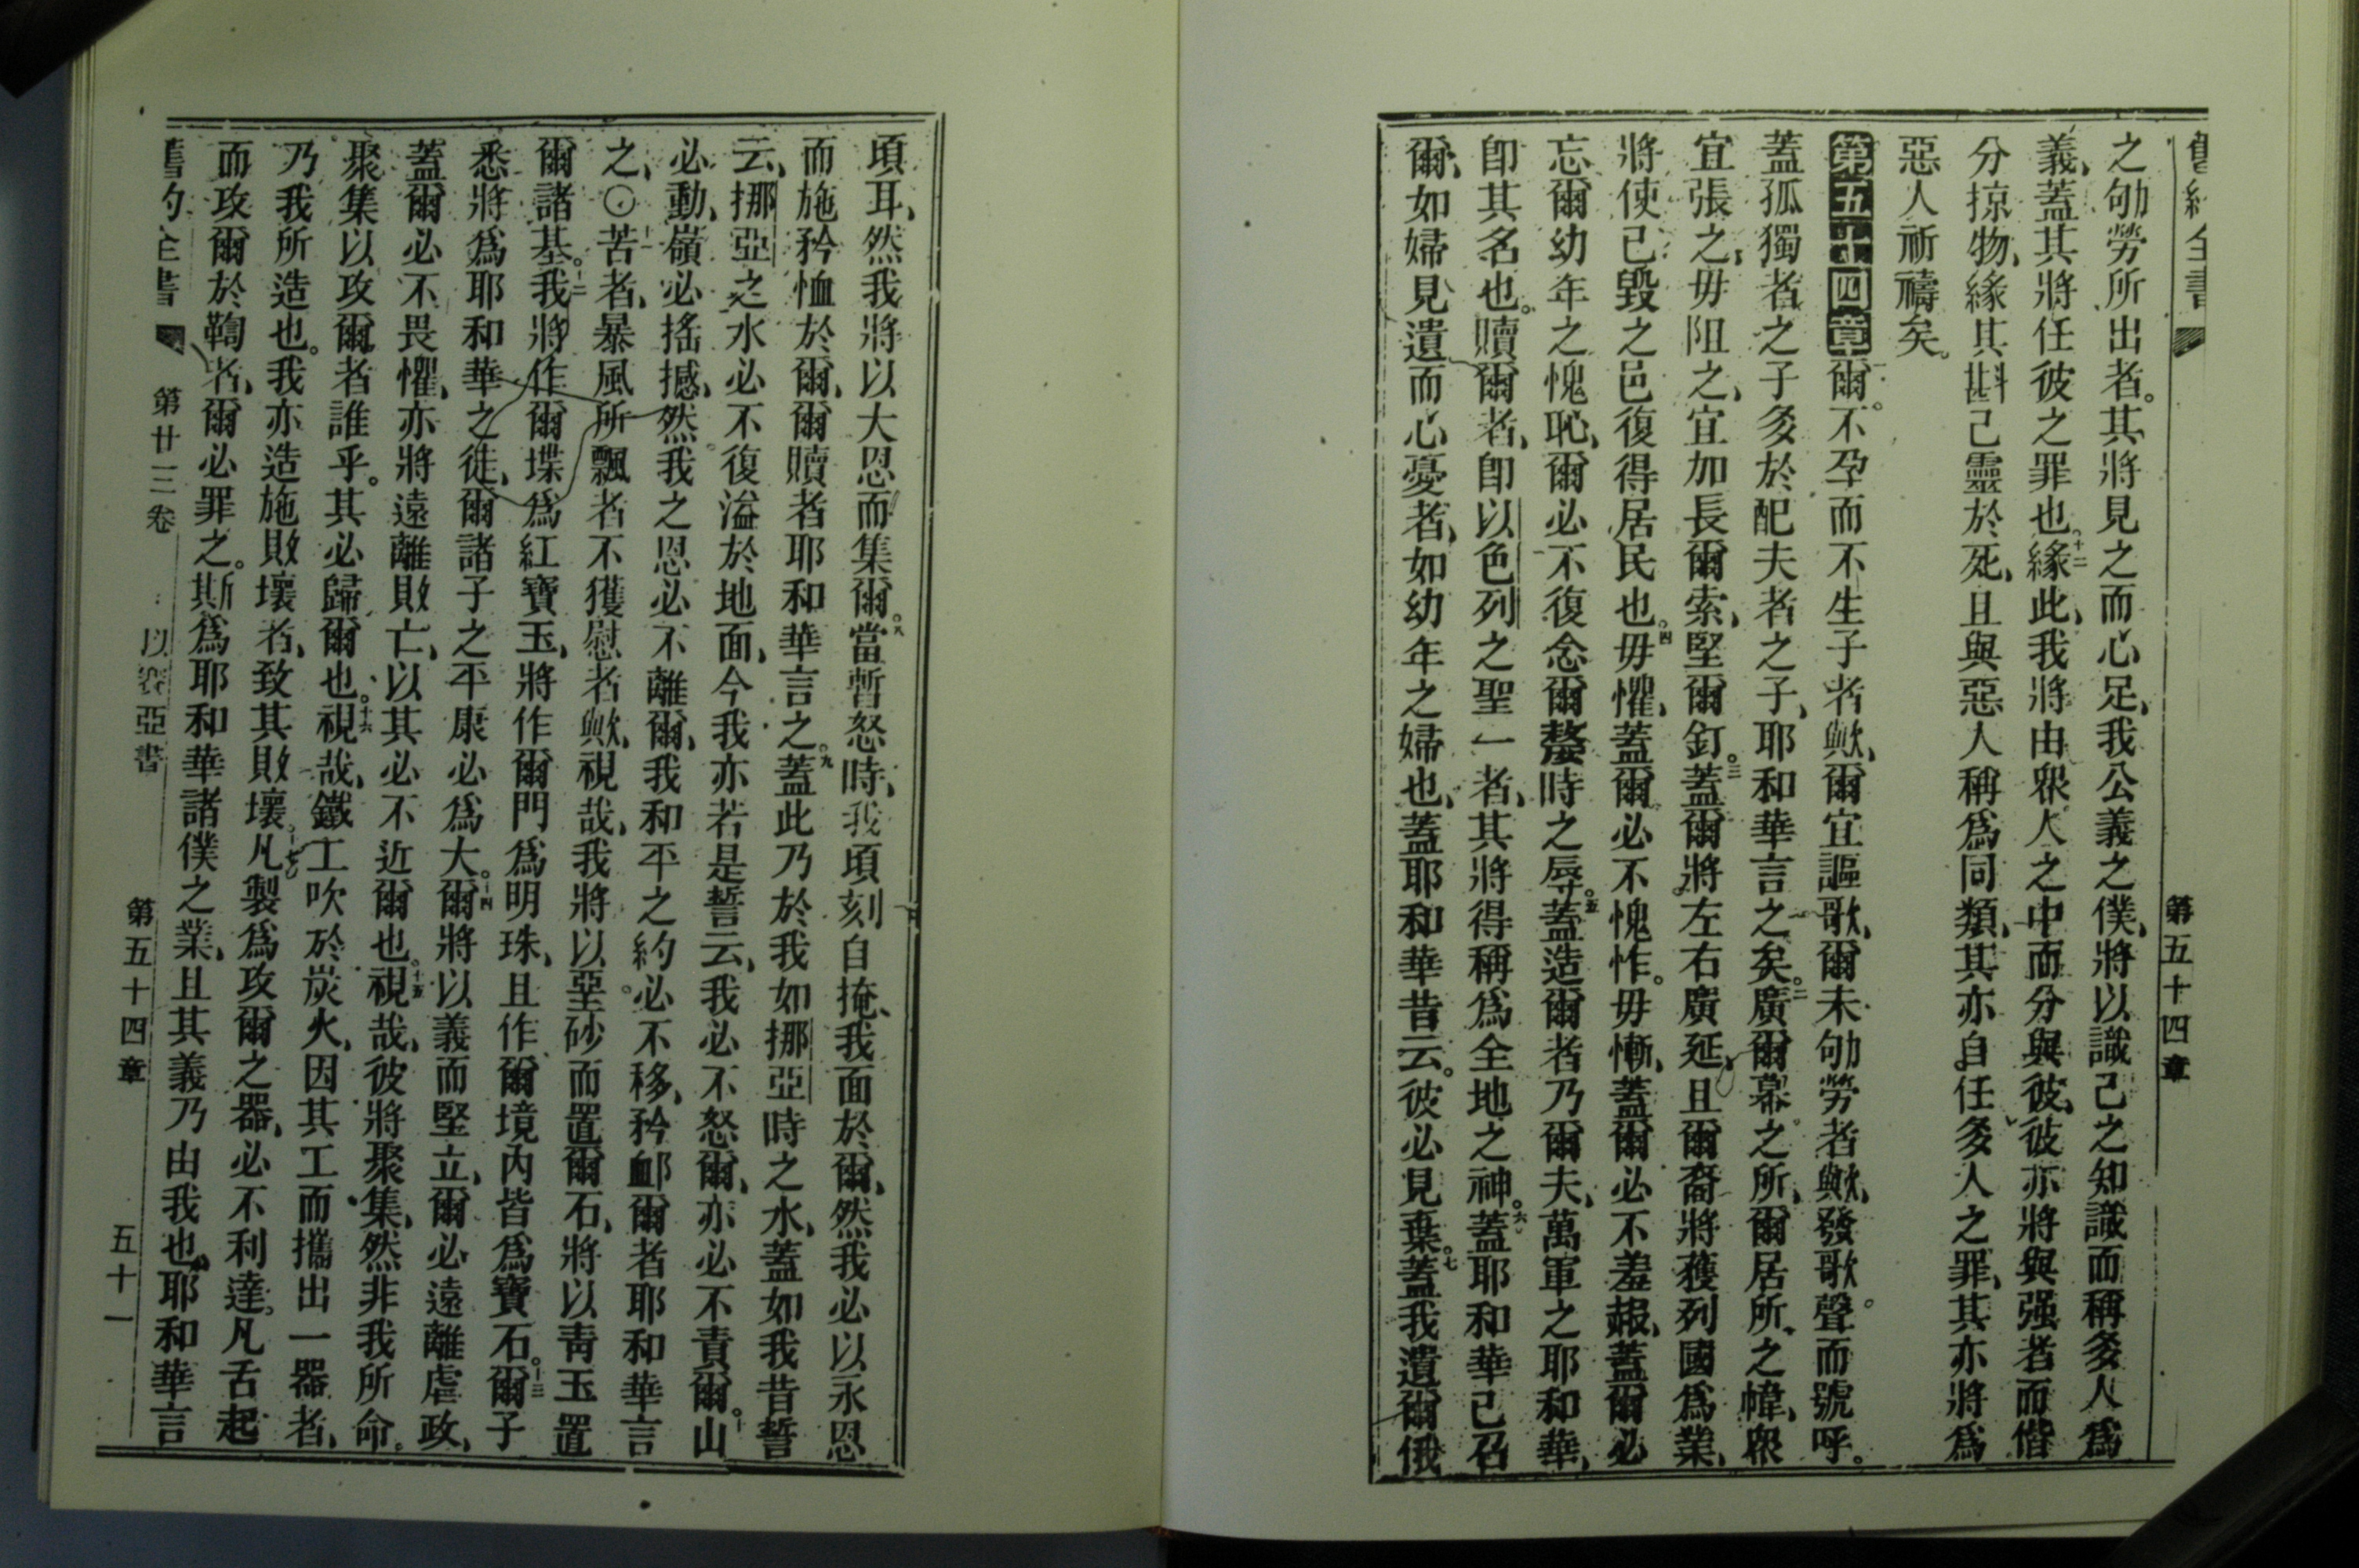 舊約全書
第五十四章
之劬勞所出者。其將見之而心足、我公義之僕、將以識己之知識而稱多人爲
義、蓋其將任彼之罪也。十二緣此、我將由衆人之中而分與彼、彼亦將與强者而偕
分掠物、緣其斟己靈於死、且與惡人稱爲同類、其亦自任多人之罪、其亦將爲
惡人祈禱矣。
第五十四章一爾不孕而不生子者歟、爾宜謳歌、爾未劬勞者歟、發歌聲而號呼。
蓋孤獨者之子多於配夫者之子、耶和華言之矣。二廣爾幕之所、爾居所之幃、衆
宜張之、毋阻之、宜加長爾索、堅爾釘。三蓋爾將左右廣延、且爾裔將獲列國爲業、
將使已毀之邑復得居民也。四毋懼、蓋爾必不愧怍。毋慚、蓋爾必不羞赧、蓋爾必
忘爾幼年之愧恥、爾必不復念爾嫠時之辱。五蓋造爾者乃爾夫、萬軍之耶和華、
卽其名也。贖爾者、卽以色列之聖一者、其將得稱爲全地之神。六蓋耶和華已召
爾、如婦見遺而心憂者、如幼年之婦也、蓋耶和華昔云。彼必見棄。七蓋我遺爾俄
頃耳、然我將以大恩而集爾。八當暫怒時、我頃刻自掩、我面於爾、然我必以永恩
而施矜恤於爾、爾贖者耶和華言之。九蓋此乃於我如挪亞時之水、蓋如我昔誓
云、挪亞之水必不復溢於地面、今我亦若是誓云、我必不怒爾、亦必不責爾。十山
必動、嶺必搖撼、然我之恩必不離爾、我和平之約必不移、矜卹爾者耶和華言
之、〇十一苦者、暴風所飄者不獲慰者歟、視哉、我將以堊砂而置爾石、將以靑玉置
爾諸基。十二我將作爾堞爲紅寶玉、將作爾門爲明珠、且作爾境內皆爲寶石。十三爾子
悉將爲耶和華之徒、爾諸子之平康必爲大。十四爾將以義而堅立、爾必遠離虐政、
蓋爾必不畏懼、亦將遠離敗亡、以其必不近爾也。十五視哉、彼將聚集、然非我所命。
聚集以攻爾者誰乎。其必歸爾也。十六視哉、鐵工吹於炭火、因其工而攜出一器者、
乃我所造也。我亦造施敗壞者、致其敗壞。十七凡製爲攻爾之器、必不利達。凡舌起
而攻爾於鞫者、爾必罪之。斯爲耶和華諸僕之業、且其義乃由我也、耶和華言
舊約全書
第廿三卷
以賽亞書
第五十四章
五十一